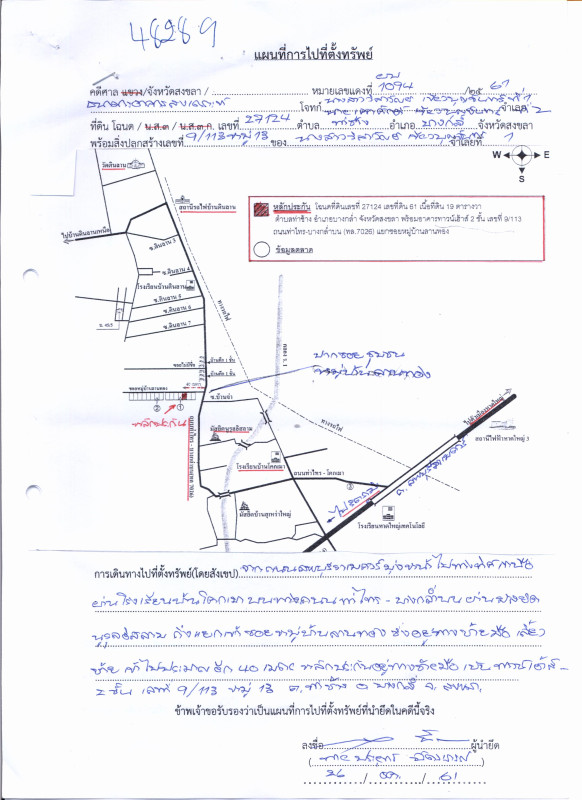 48289
แผนที่การไปที่ตั้งทรัพย์
คดีศาล แขวง/จังหวัดสงขลา / หมายเลขแดงที่ 1094 /๒๕ 61
โจทก์ จำเลย
ที่ดิน โฉนด / น.ส.๓ / น.ส.๓.ก. เลขที่ 27124 ตำบล ท่าช้าง อำเภอ บางกล่ำ จังหวัดสงขลา
พร้อมสิ่งปลูกสร้างเลขที่ 9/113 หมู่ 13 ของ จำเลยที่ 1
W E
S
วัดดินลาน
สถานีรถไฟบ้านดินลาน
ไปบ้านดินลานเหนือ
ซ.ดินลาน 3
ซ.ดินลาน 4
โรงเรียนบ้านดินลาน
ซ.ดินลาน 5
ซ.ดินลาน 6
ซ.ดินลาน 7
ทางรถไฟ
คลอง ร.1
หลักประกัน โฉนดที่ดินเลขที่ 27124 เลขที่ดิน 61 เนื้อที่ดิน 19 ตารางวา
ตำบลท่าช้าง อำเภอบางกล่ำ จังหวัดสงขลา พร้อมอาคารทาวน์เฮ้าส์ 2 ชั้น เลขที่ 9/113
ถนนท่าไทร-บางกล่ำบน (ทล.7026) แยกซอยหมู่บ้านลานทอง
ข้อมูลตลาด
ปากซอย ชุมชน
หมู่บ้านลานทอง
บ้านตึก 1 ชั้น
บ้านตึก 1 ชั้น
ซอยหมู่บ้านลานทอง
② ①
หลักประกัน
มัสยิดนูรุลอิสลาม
โรงเรียนบ้านโคกเมา
ทางรถไฟ
ถนนท่าไทร - โคกเมา
มัสยิดบ้านสุเหร่าใหญ่
③
โรงเรียนหาดใหญ่เทคโนโลยี
สถานีไฟฟ้าหาดใหญ่ 3
ถ. ลพบุรีราเมศวร์
การเดินทางไปที่ตั้งทรัพย์(โดยสังเขป) จากถนนลพบุรีราเมศวร์มุ่งหน้าไปทางทิศเหนือ
ผ่านโรงเรียนบ้านโคกเมา บนทางถนนท่าไทร - บางกล่ำบน ผ่านมัสยิด
นูรุลอิสลาม ถึงแยกเข้าซอยหมู่บ้านลานทอง ซึ่งอยู่ทางซ้ายมือ เลี้ยว
ซ้าย เข้าไปประมาณอีก 40 เมตร หลักประกันอยู่ทางซ้ายมือ เป็นทาวน์เฮ้าส์
2 ชั้น เลขที่ 9/113 หมู่ 13 ต.ท่าช้าง อ.บางกล่ำ จ.สงขลา
ข้าพเจ้าขอรับรองว่าเป็นแผนที่การไปที่ตั้งทรัพย์ที่นำยึดในคดีนี้จริง
ลงชื่อ ผู้นำยึด
( )
26 / / 61